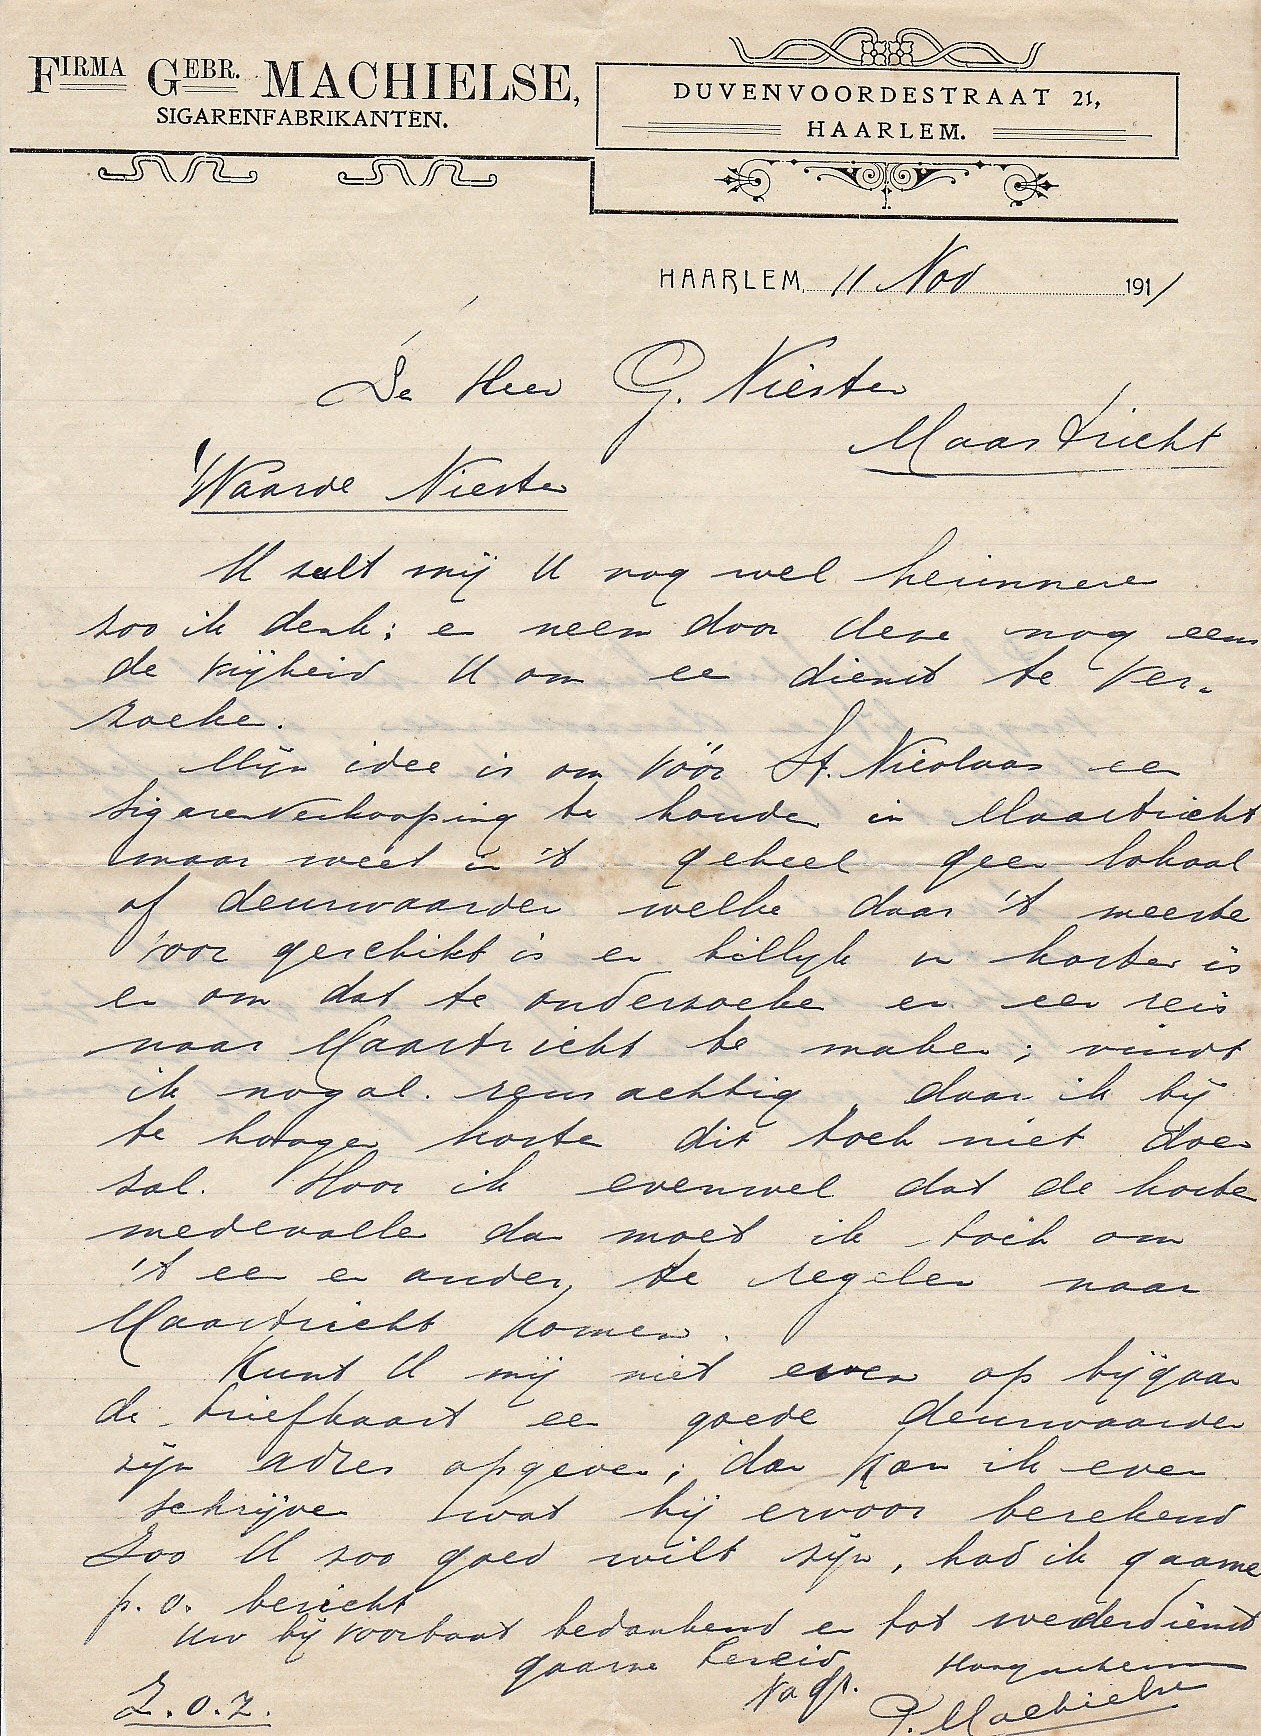 FIRMA GEBR. MACHIELSE,
SIGARENFABRIKANTEN.
DUVENVOORDESTRAAT 21,
HAARLEM.
HAARLEM, 11 Nov 1911
De Heer G. Niester
Maastricht
Waarde Niester
U sult mij U nog wel herinnere
zoo ik denk; en neem door deze nog eens
de vrijheid U om ee dienst te ver-
zoeke.
Mijn idee is om vóór St. Nicolaas een
sigarenverkooping te houden in Maastricht
maar weet in 't geheel geen lokaal
of deurwaarder welke daar 't meeste
voor geschikt is en billijk in kosten is
en om dat te onderzoeke en een reis
naar Maastricht te maken; vindt
ik nogal. daar ik bij
te hooge koste dit toch niet doen
zal. Hoor ik evenwel dat de koste
medevalle dan moet ik toch om
't een en ander, te regelen naar
Maastricht komen.
Kunt U mij niet even op bijgaan
de briefkaart een goede deurwaarder
zijn adres opgeven; dan kan ik even
schrijven wat hij ervoor berekend
Zoo U zoo goed wilt zijn, had ik gaarne
p. o. bericht
Uw bij voorbaat bedankend en tot wederdienst
gaarne bereid Hoogachtend
P. Machielse
Z.O.Z.